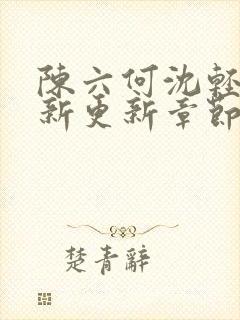 陳六何沈輕
新更新章節
楚青辭